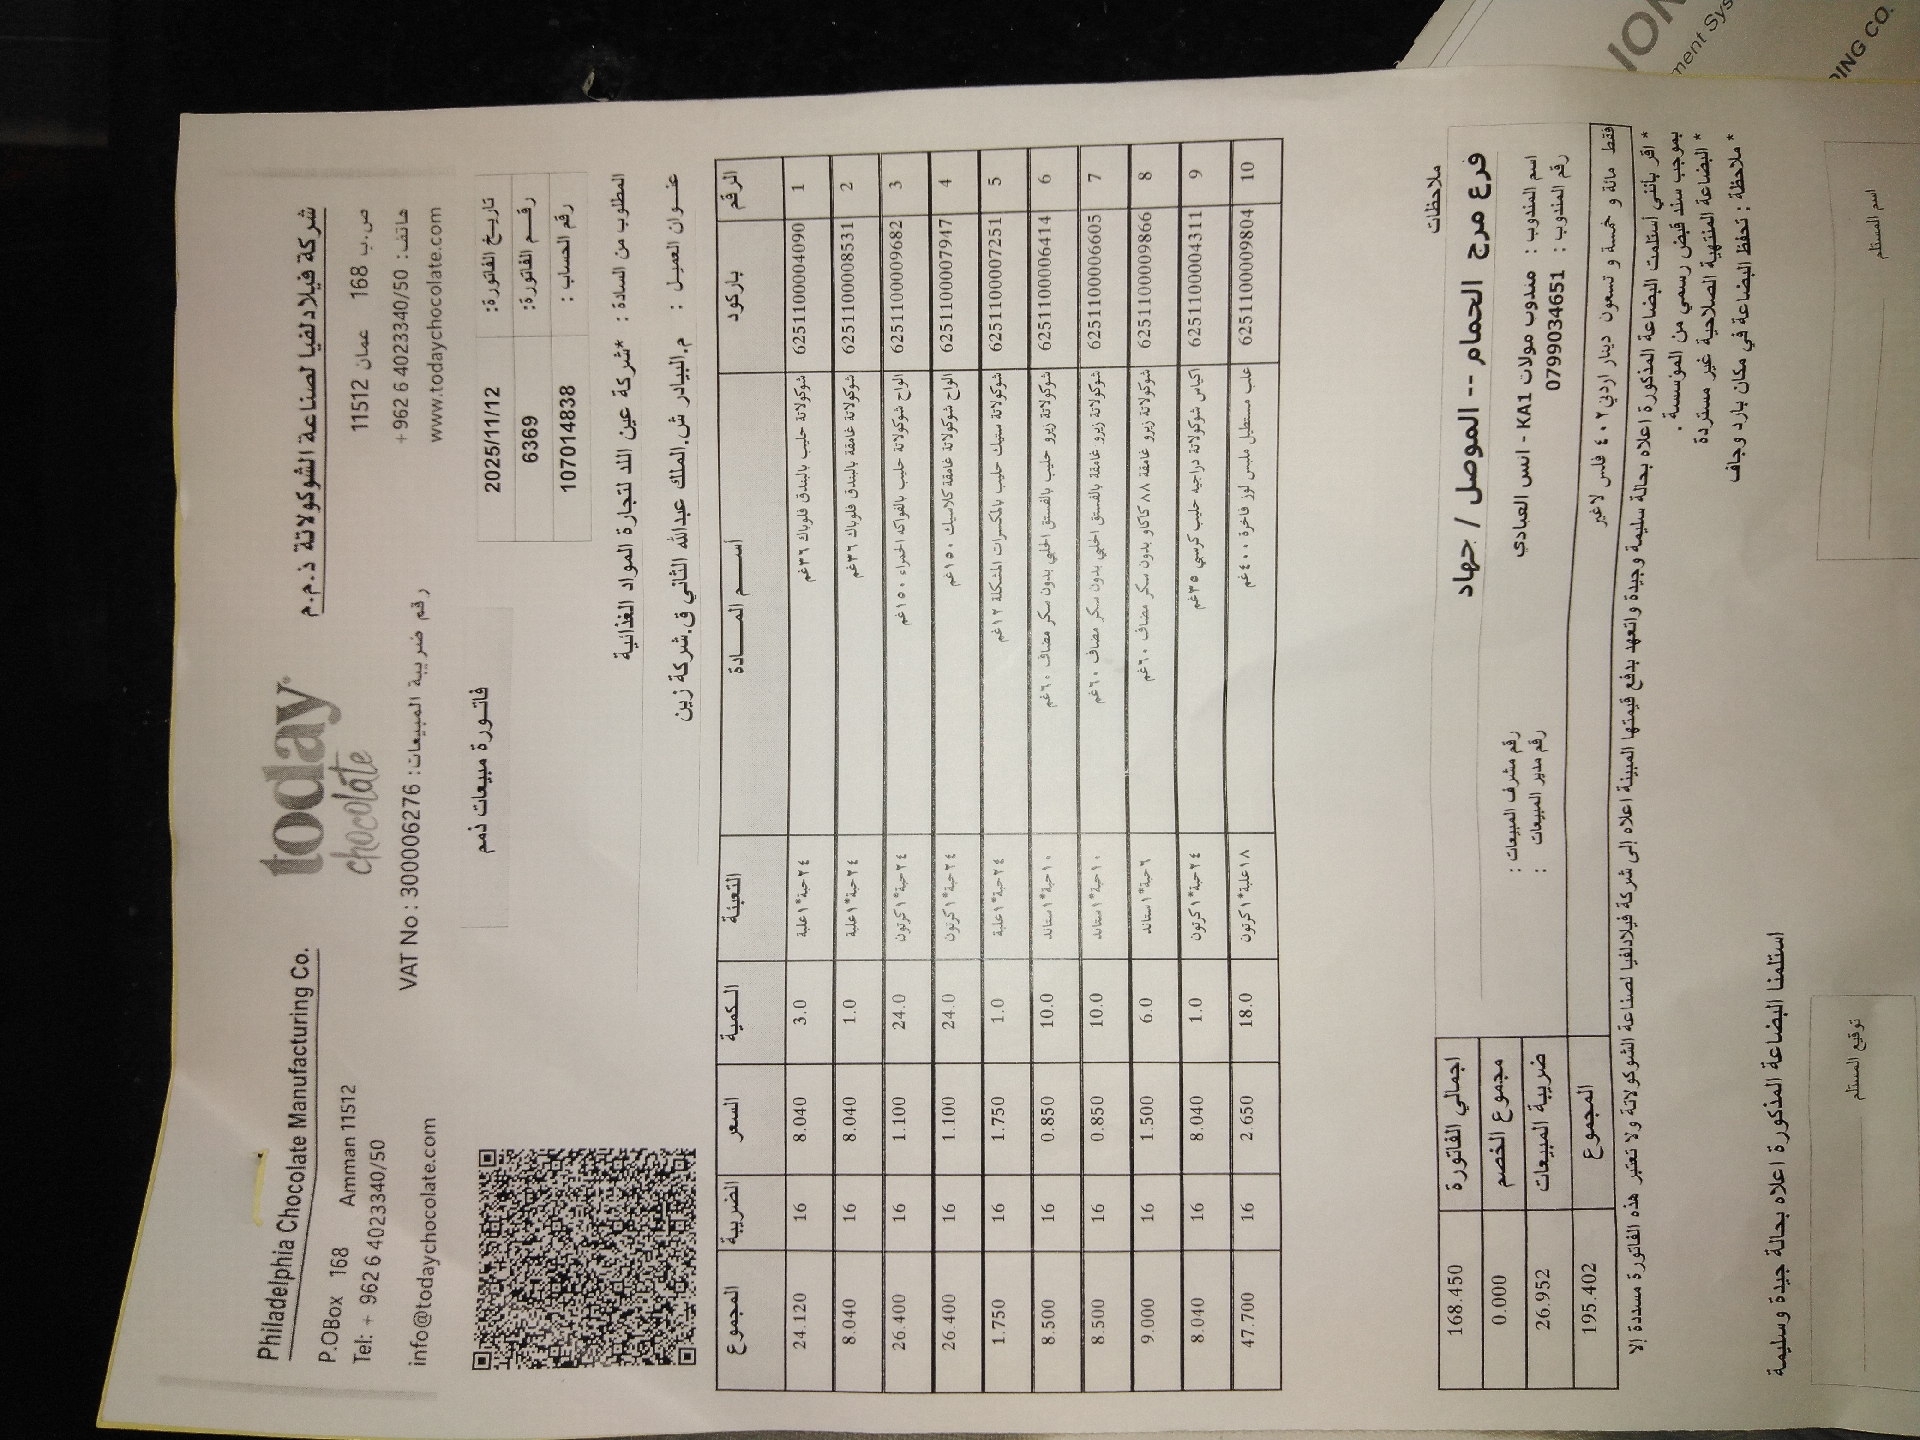 Philadelphia Chocolate Manufacturing Co.
P.OBox 168 Amman 11512
Tel: + 962 6 4023340/50
info@todaychocolate.com
today
chocolate
شركة فيلادلفيا لصناعة الشوكولاتة ذ.م.م
ص.ب 168 عمان 11512
هاتف: 962 6 4023340/50 +
www.todaychocolate.com
VAT No : 300006276 :رقم ضريبة المبيعات
فاتـورة مبيعات ذمم
تاريـخ الفاتورة: 2025/11/12
رقـم الفاتورة: 6369
رقم الحساب : 107014838
المطلوب من السادة : *شركة عين اللد لتجارة المواد الغذائية
عنـوان العميـل : م.البيادر ش.الملك عبدالله الثاني ق.شركة زين
الرقم باركود أسـم المــادة التعبئة الـكمية السعر الضريبة المجموع
1 6251100004090 شوكولاتة حليب بالبندق فلوباك ٣٦غم ٢٤حبة*١علبة 3.0 8.040 16 24.120
2 6251100008531 شوكولاتة غامقة بالبندق فلوباك ٣٦غم ٢٤حبة*١علبة 1.0 8.040 16 8.040
3 6251100009682 الواح شوكولاتة حليب بالفواكه الحمراء ١٥٠غم ٢٤حبة*١كرتون 24.0 1.100 16 26.400
4 6251100007947 الواح شوكولاتة غامقة كلاسيك ١٥٠غم ٢٤حبة*١كرتون 24.0 1.100 16 26.400
5 6251100007251 شوكولاتة ستيك حليب بالمكسرات المشكلة ١٢غم ٢٤حبة*١علبة 1.0 1.750 16 1.750
6 6251100006414 شوكولاتة زيرو حليب بالفستق الحلبي بدون سكر مضاف ٦٠غم ١٠حبة*١ستاند 10.0 0.850 16 8.500
7 6251100006605 شوكولاتة زيرو غامقة بالفستق الحلبي بدون سكر مضاف ٦٠غم ١٠حبة*١ستاند 10.0 0.850 16 8.500
8 6251100009866 شوكولاتة زيرو غامقة ٨٨ كاكاو بدون سكر مضاف ٦٠غم ٦حبة*١ستاند 6.0 1.500 16 9.000
9 6251100004311 اكياس شوكولاتة دراجيه حليب كرسبي ٣٥غم ٢٤حبة*١كرتون 1.0 8.040 16 8.040
10 6251100009804 علب مستطيل ملبس لوز فاخرة ٤٠٠غم ١٨علبة*١كرتون 18.0 2.650 16 47.700
ملاحظات
فرع مرج الحمام -- الموصل / جهاد
اسم المندوب : مندوب مولات KA1 - انس العبادي
رقم المندوب : 0799034651
رقم مشرف المبيعات :
رقم مدير المبيعات :
اجمالي الفاتورة 168.450
مجموع الخصم 0.000
ضريبة المبيعات 26.952
المجموع 195.402
فقط مائة و خمسة و تسعون دينار اردني ٤٠٢ فلس لاغير
* اقر بأنني أستلمت البضاعة المذكورة اعلاه بحالة سليمة وجيدة واتعهد بدفع قيمتها المبينة اعلاه إلى شركة فيلادلفيا لصناعة الشوكولاتة ولا تعتبر هذه الفاتورة مسددة إلا
بموجب سند قبض رسمي من المؤسسة .
* البضاعة المنتهية الصلاحية غير مستردة
* ملاحظة : تحفظ البضاعة في مكان بارد وجاف
استلمنا البضاعة المذكورة اعلاه بحالة جيدة وسليمة
اسم المستلم
توقيع المستلم
ment Sys
DING CO.